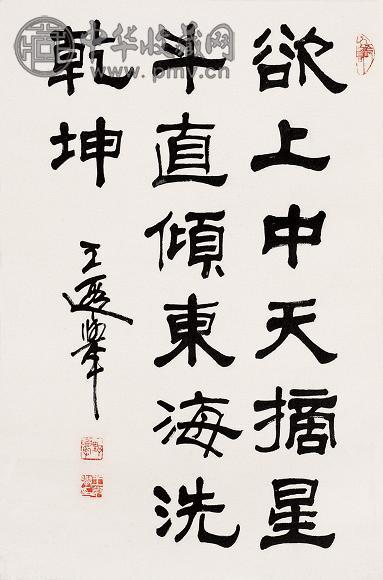 欲上中天摘星
斗直傾東海洗
乾坤
王遐舉
中华收藏网
www.pmyc.cn